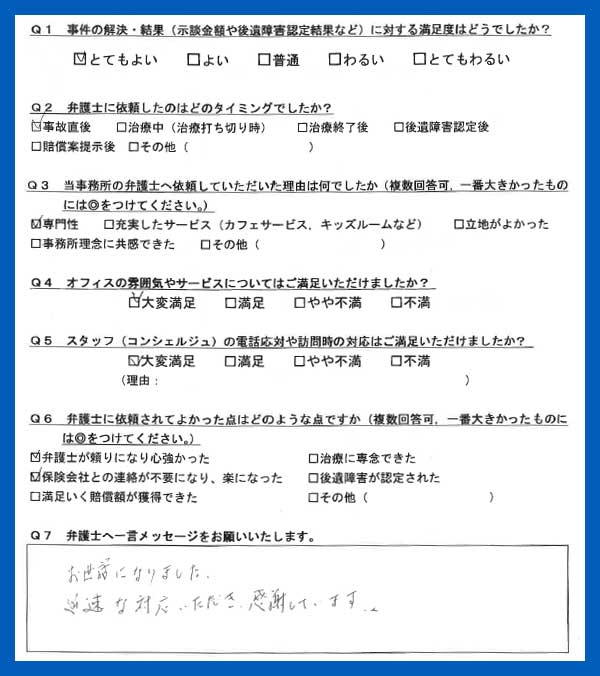 Q1 事件の解決・結果（示談金額や後遺障害認定結果など）に対する満足度はどうでしたか？
☑とてもよい □よい □普通 □わるい □とてもわるい
Q2 弁護士に依頼したのはどのタイミングでしたか？
☑事故直後 □治療中（治療打ち切り時） □治療終了後 □後遺障害認定後
□賠償案提示後 □その他（ ）
Q3 当事務所の弁護士へ依頼していただいた理由は何でしたか（複数回答可，一番大きかったもの
には◎をつけてください。）
☑専門性 □充実したサービス（カフェサービス，キッズルームなど） □立地がよかった
□事務所理念に共感できた □その他（ ）
Q4 オフィスの雰囲気やサービスについてはご満足いただけましたか？
☑大変満足 □満足 □やや不満 □不満
Q5 スタッフ（コンシェルジュ）の電話応対や訪問時の対応はご満足いただけましたか？
☑大変満足 □満足 □やや不満 □不満
（理由： ）
Q6 弁護士に依頼されてよかった点はどのような点ですか（複数回答可，一番大きかったものに
は◎をつけてください。）
☑弁護士が頼りになり心強かった □治療に専念できた
☑保険会社との連絡が不要になり、楽になった □後遺障害が認定された
□満足いく賠償額が獲得できた □その他（ ）
Q7 弁護士へ一言メッセージをお願いいたします。
お世話になりました。
迅速な対応いただき、感謝しています。